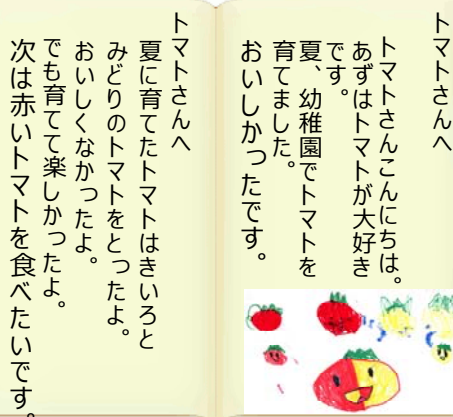 トマトさんへ
トマトさんこんにちは。
あずはトマトが大好き
です。
夏、幼稚園でトマトを
育てました。
おいしかったです。
トマトさんへ
夏に育てたトマトはきいろと
みどりのトマトをとったよ。
おいしくなかったよ。
でも育てて楽しかったよ。
次は赤いトマトを食べたいです。